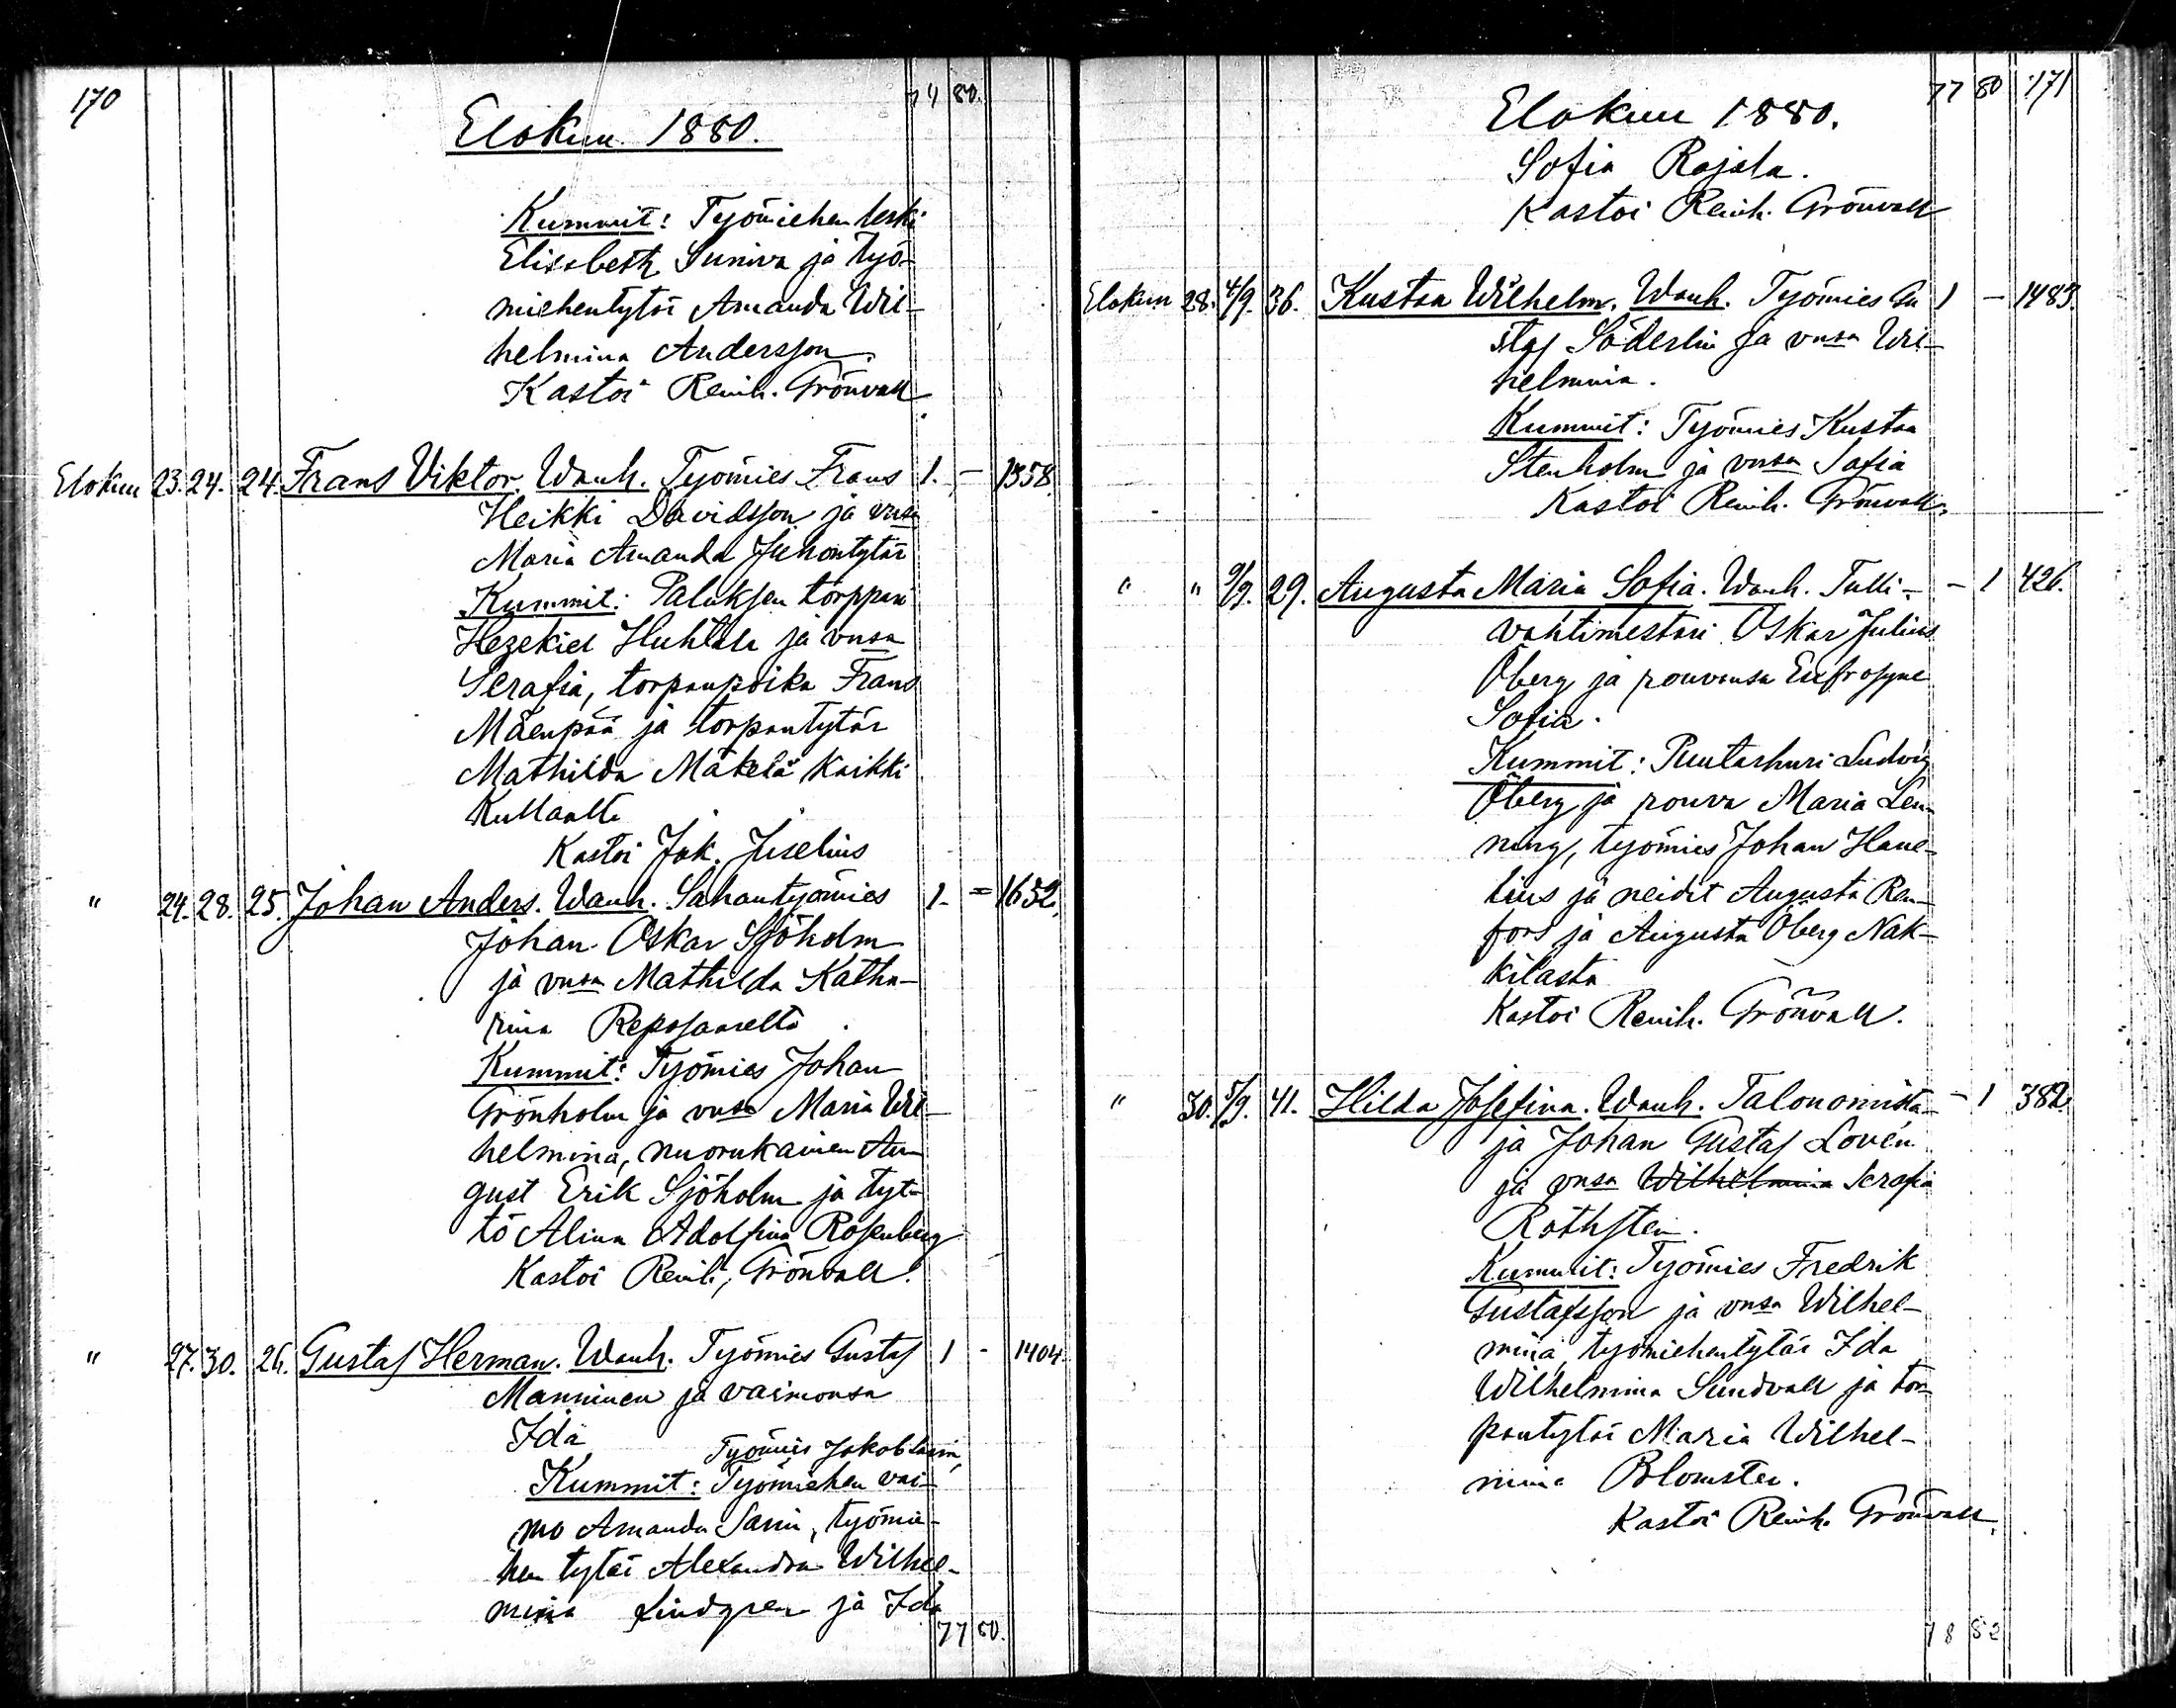 170
74 80.
Elokuu 1880.
Kummit: Työmiehen leski
Elisabeth Suniva ja työ-
miehentytär Amanda Wil-
helmina Andersson.
Kastoi Reinh. Grönvall
Elokuu 23. 24. 24. Frans Viktor. Wanh. Työmies Frans 1. - 1358.
Heikki Davidsson ja vmsa
Maria Amanda Juhontytär
Kummit: Paluksen torppari
Hezekiel Huhtala ja vmsa
Serafia, torpanpoika Frans
Mäenpää ja torpantytär
Mathilda Mäkelä kaikki
Kullaalta
Kastoi Jak. Jiselius
" 24. 28. 25. Johan Anders. Wanh. Sahantyömies 1. = 1652.
Johan Oskar Sjöholm
ja vmsa Mathilda Katha-
rina Reposaarelta.
Kummit: Työmies Johan
Grönholm ja vmsa Maria Wil-
helmina, nuorukainen Au-
gust Erik Sjöholm ja tyt-
tö Alina Adolfina Rosenberg
Kastoi Reinh. Grönvall.
" 27. 30. 26. Gustaf Herman. Wanh. Työmies Gustaf 1 - 1404.
Manninen ja vaimonsa
Ida
Työmies Jakob
Kummit: Työmiehen vai-
mo Amanda, työmie-
hen tytär Alexandra Wilhel-
mina Lindgren ja Ida
77 80.
77 80 171
Elokuu 1880.
Sofia Rajala.
Kastoi Reinh. Grönvall
Elokuu 28. 4/9. 36. Kustaa Wilhelm. Wanh. Työmies Gu 1 - 1483.
staf Söderlin ja vmsa Wil-
helmina.
Kummit: Työmies Kustaa
Stenholm ja vmsa Sofia
Kastoi Reinh. Grönvall.
" " 9/9. 29. Augusta Maria Sofia. Wanh. Tulli- - 1 426.
vahtimestari Oskar Julius
Öberg ja rouvansa Eufrosyne
Sofia.
Kummit: Puutarhuri Ludvig
Öberg ja rouva Maria Len-
ning, työmies Johan Hane-
lius ja neidit Augusta Ren-
fors ja Augusta Öberg Nak-
kilasta
Kastoi Reinh. Grönvall.
" 30. 5/9. 41. Hilda Josefina. Wanh. Talonomista- - 1 382.
ja Johan Gustaf Lovén
ja vmsa Wilhelmina Serafia
Rothsten.
Kummit: Työmies Fredrik
Gustafsson ja vmsa Wilhel-
mina, työmiehentytär Ida
Wilhelmina Sundvall ja tor-
pantytär Maria Wilhel-
mina Blomster.
Kastoi Reinh. Grönvall.
78 82